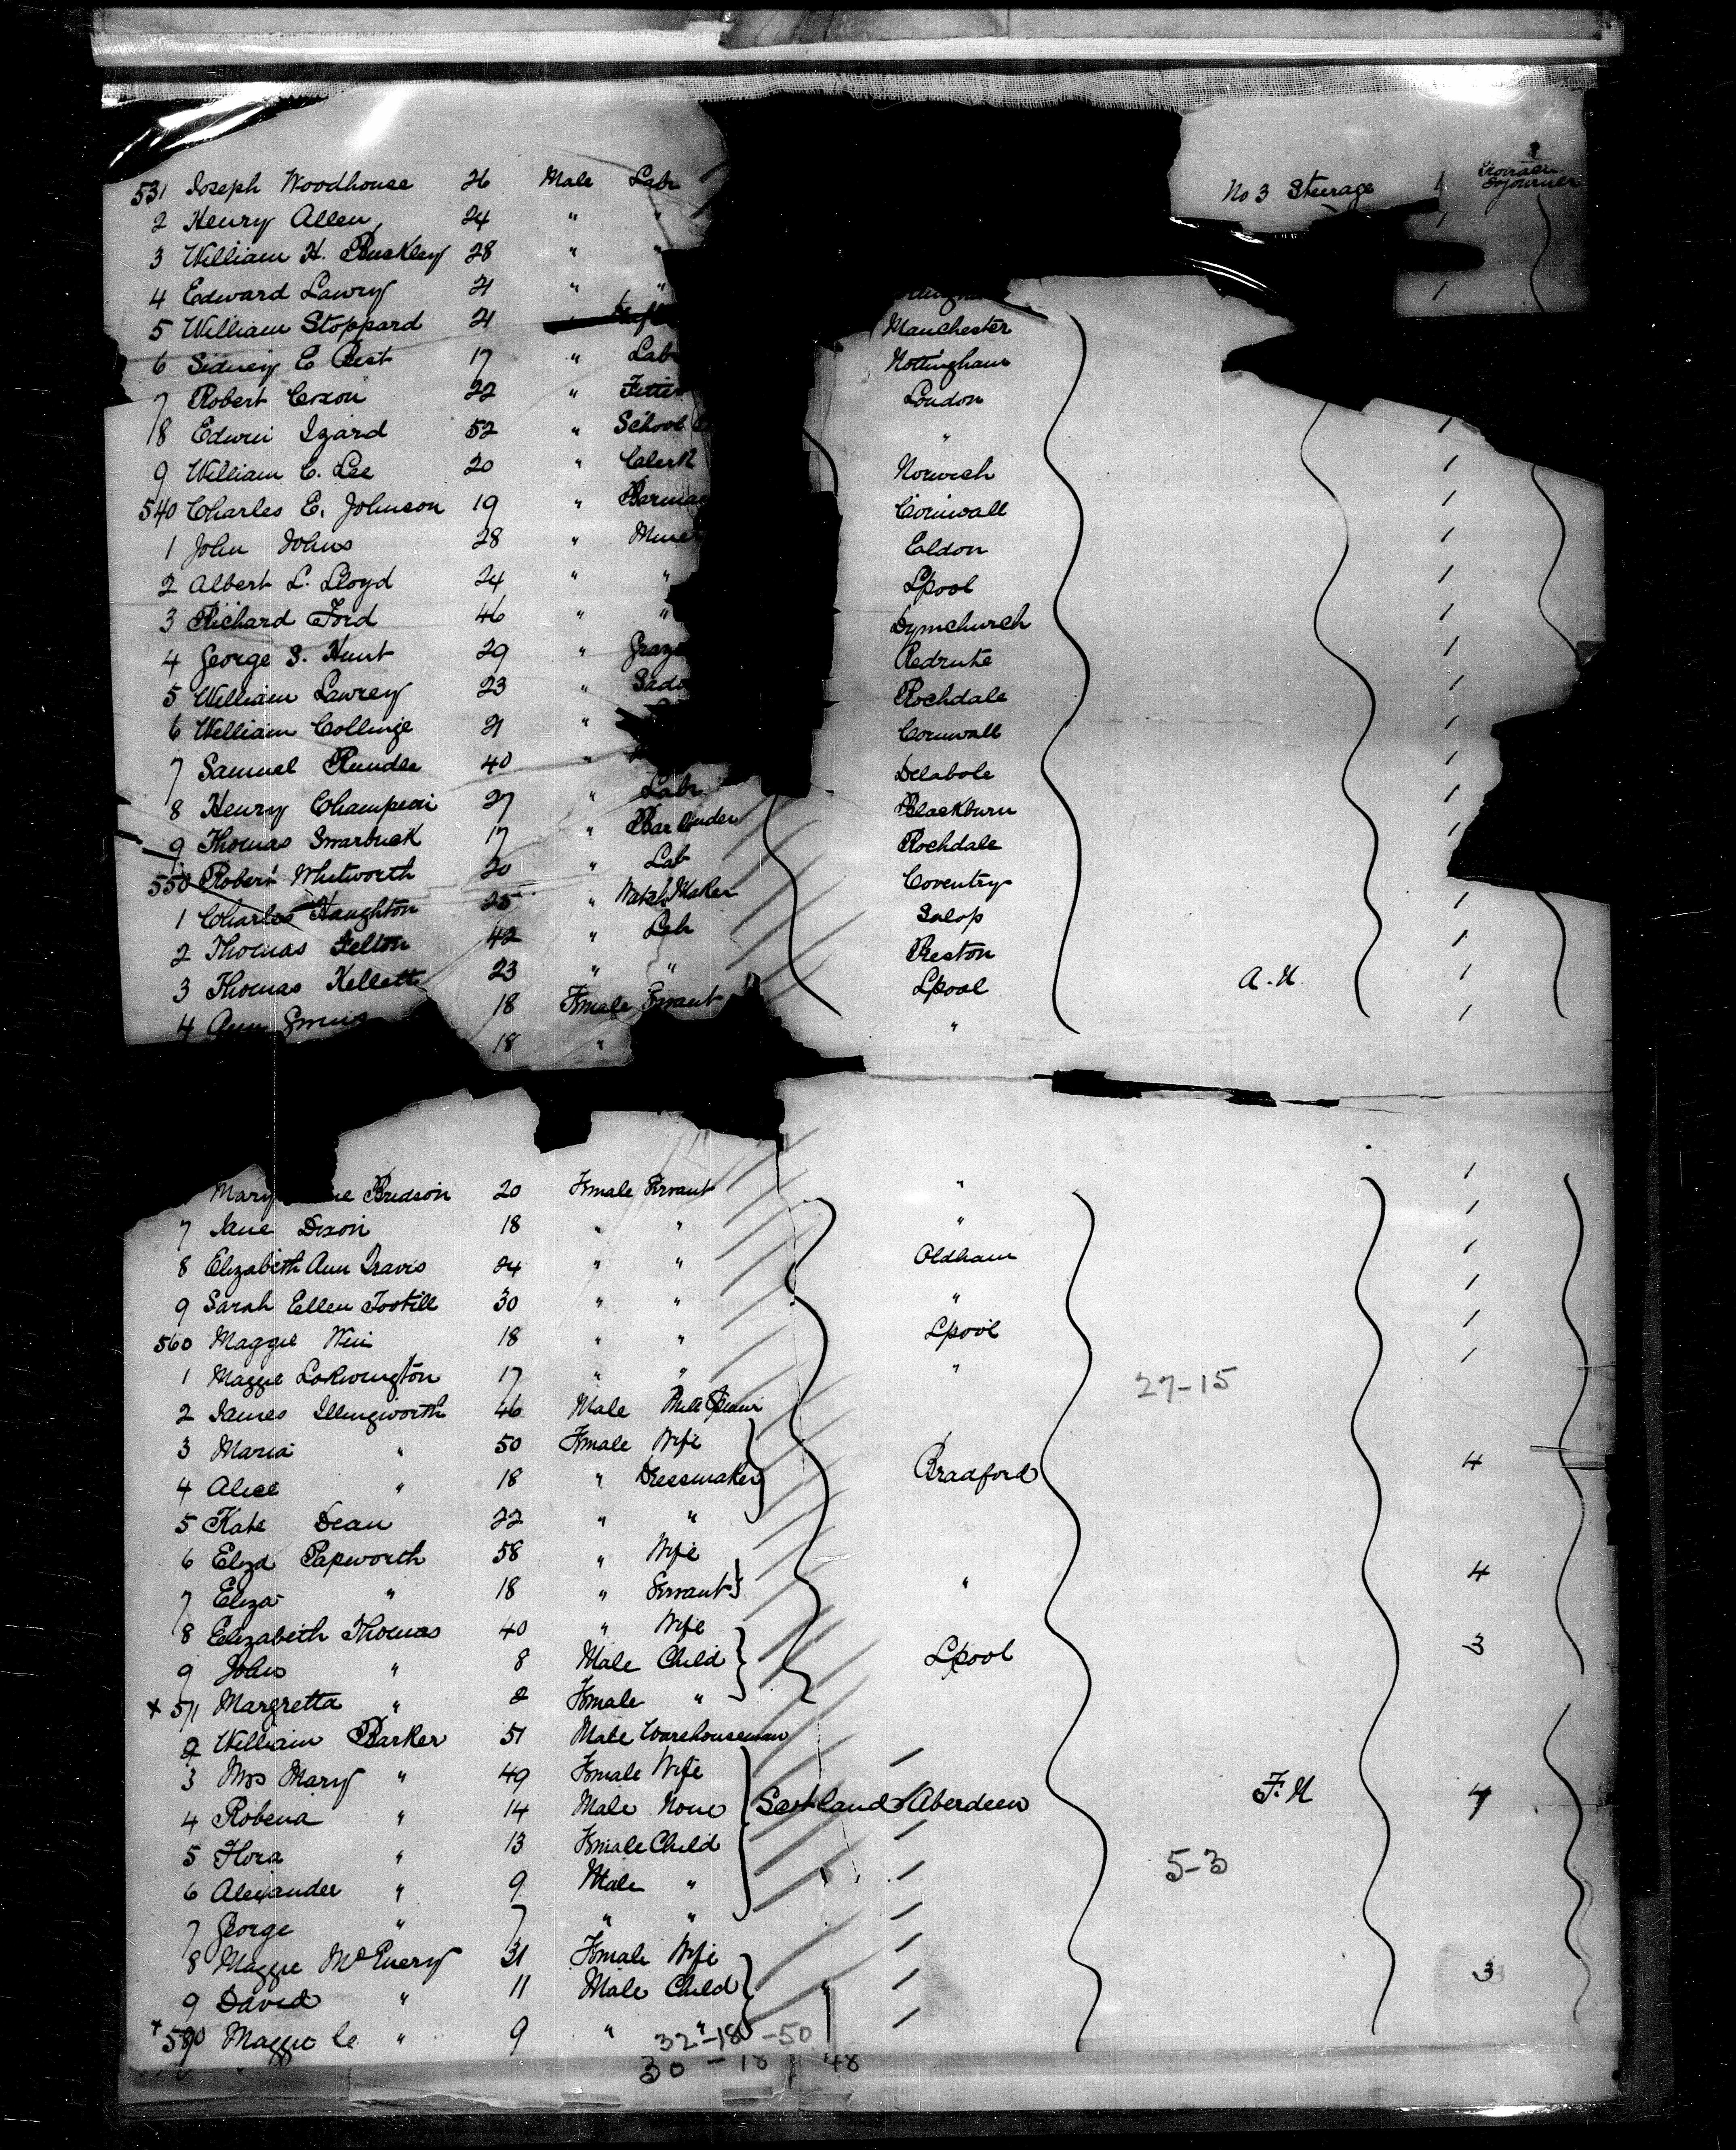 531 Joseph Woodhouse 26 Male Labr No 3 Steerage 1 Sojourner
2 Henry Allen 24 " "
3 William H. Buckley 28 " "
4 Edward Lawry 21 " " 1
5 William Stoppard 21 Manchester
6 Sidney E 17 " Lab Nottingham
7 Robert Coxon 22 " Fitter London
8 Edwin Izard 52 " School " 1
9 William C. Lee 20 " Clerk Norwich 1
540 Charles E. Johnson 19 " Barma Cornwall 1
1 John Johns 28 " Mine Eldon 1
2 Albert L. Lloyd 24 " " Lpool 1
3 Richard Ford 46 " " Dymchurch 1
4 George S. Hunt 29 " Graz Redruth 1
5 William Lawrey 23 " Sadd Rochdale 1
6 William Collinge 21 " Cornwall 1
7 Samuel Rundle 40 " Delabole 1
8 Henry Champion 27 " Labr Blackburn 1
9 Thomas Swarbrick 17 " Bar tender Rochdale 1
550 Robert Whitworth 20 " Lab Coventry
1 Charles Haughton 25 " Watch Maker Salop 1
2 Thomas Felton 42 " Lab Preston 1
3 Thomas Kellett 23 " " Lpool A.H. 1
4 Ann 18 Female Servant " 1
18 "
Mary Budson 20 Female Servant " 1
7 Jane Dixon 18 " " " 1
8 Elizabeth Ann Travis 24 " " Oldham 1
9 Sarah Ellen Tootill 30 " " " 1
560 Maggie 18 " " Lpool 1
1 Maggie 17 " " " 1 27-15
2 James Illingworth 46 Male
3 Maria " 50 Female Wife
4 Alice " 18 " Dressmaker Bradford 4
5 Kate Dean 22 " "
6 Eliza Papworth 58 " Wife
7 Eliza " 18 " Servant " 4
8 Elizabeth Thomas 40 " Wife
9 John " 8 Male Child Lpool 3
x 571 Margretta " 2 Female "
2 William Barker 51 Male Warehouseman
3 Mrs Mary " 49 Female Wife
4 Robena " 14 Male None Scotland Aberdeen F.H 7
5 Flora " 13 Female Child
6 Alexander " 9 Male " 5-3
7 George " 7 " "
8 Maggie McEnery 31 Female Wife
9 David " 11 Male Child 3
x 580 Maggie " 9 " "
32-18-50
30-18 48